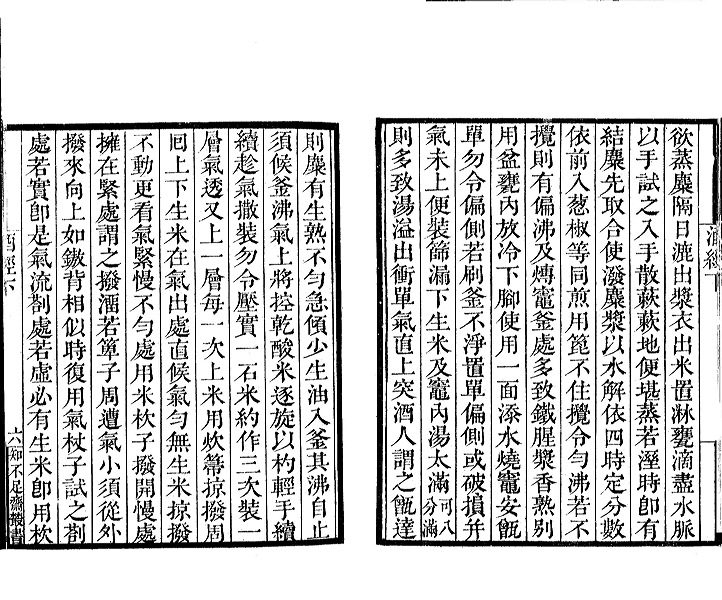 欲蒸麋隔日漉出漿衣出米置淋甕滴盡水脈
以手試之入手散蔌蔌地便堪蒸若溼時卽有
結麋先取合使潑麋漿以水解依四時定分數
依前入葱椒等同煎用篦不住攪令勻沸若不
攪則有偏沸及煿竈釜處多致鐵腥漿香熟別
用盆甕內放冷下腳使用一面添水燒竈安甑
單勿令偏側若刷釜不淨置單偏側或破損幷
氣未上便裝篩漏下生米及竈內湯太滿可八分滿
則多致湯溢出衝單氣直上突酒人謂之甑達
則麋有生熟不勻急傾少生油入釜其沸自止
須候釜沸氣上將控乾酸米逐旋以杓輕手續
續趁氣撒裝勿令壓實一石米約作三次裝一
層氣透又上一層每一次上米用炊箒掠撥周
囘上下生米在氣出處直候氣勻無生米掠撥
不動更看氣緊慢不勻處用米杴子撥開慢處
擁在緊處謂之撥溜若箄子周遭氣小須從外
撥來向上如鏊背相似時復用氣杖子試之劄
處若實卽是氣流劄處若虛必有生米卽用杴
酒經下
酒經下
六
知不足齋叢書